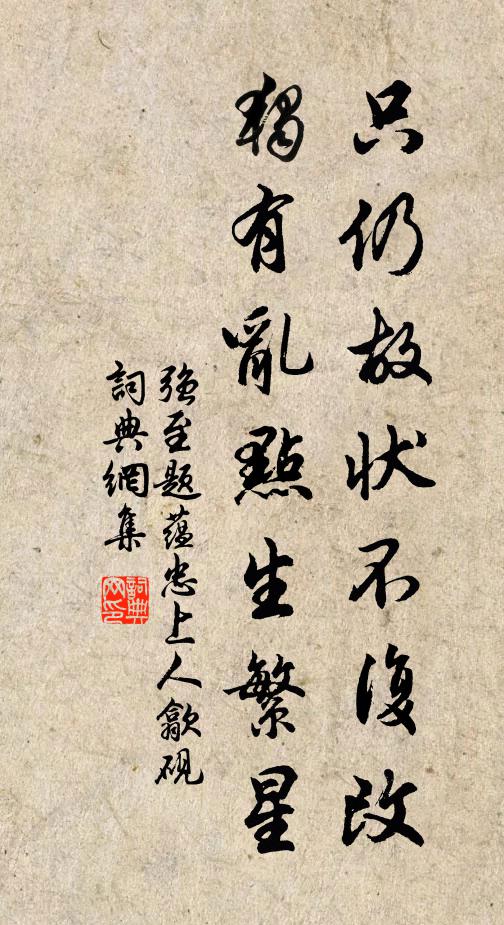 只仍故状不復改
獨有亂點生繁星
强至题蕴忠上人歙砚
詞典網集
詞典
网印